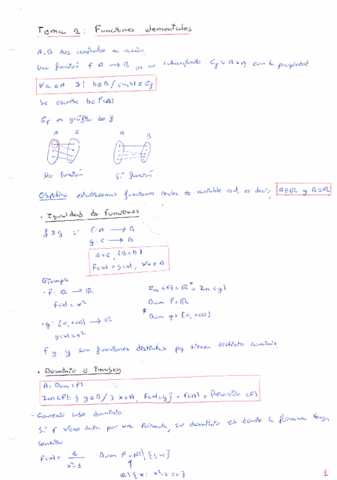 Tema 2: Funciones elementales
A, B dos conjuntos no vacíos
Una función f: A → B es un subconjunto Gf ⊆ A×B con la propiedad
∀a ∈ A ∃! b ∈ B / (a,b) ∈ Gf
Se escribe b = f(a)
Gf es gráfica de f
A B A B
No función Sí función
Objetivo: estudiaremos funciones reales de variable real, es decir, A ⊆ ℝ y B ⊆ ℝ
• Igualdad de funciones
f = g si f: A → B
g: C → B
A = C
f(x) = g(x), ∀x ∈ A
Ejemplo
f(x) = x²
Dom f = ℝ
• g: [0, +∞) → ℝ
g(x) = x²
Dom g = [0, +∞)
f y g son funciones distintas pq tienen distinto dominio
• Dominio e imagen
A = Dom(f)
Im(f) = { y ∈ B / ∃ x ∈ A, f(x) = y } = f(A) = Recorrido(f)
- Comentario sobre dominio
Si f viene dada por una fórmula, su dominio es donde la fórmula tenga
sentido
f(x) = 1 / x²-1 Dom f = ℝ \ {1, -1}
1